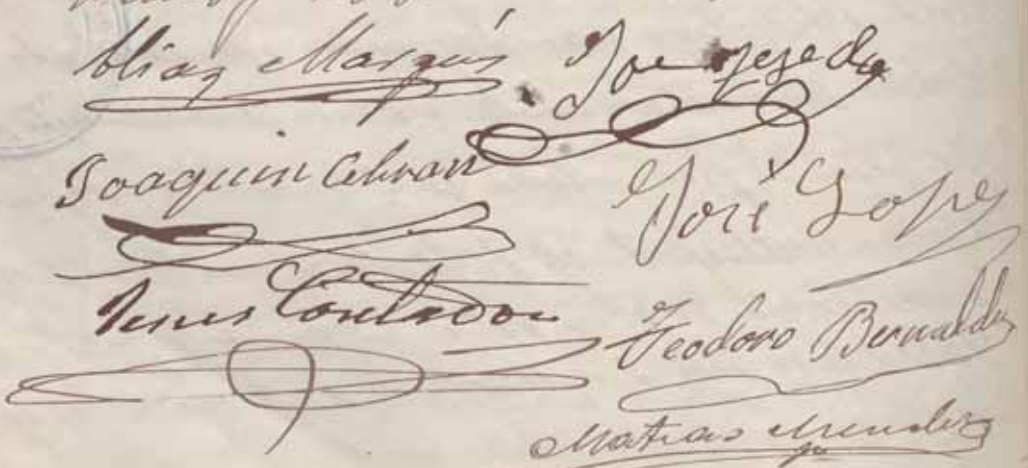 Elias Marqués
Joe Tejeda
Joaquin Cebran
José Lopez
Jesus Contador
Teodoro Bernaldez
Matias Mendez